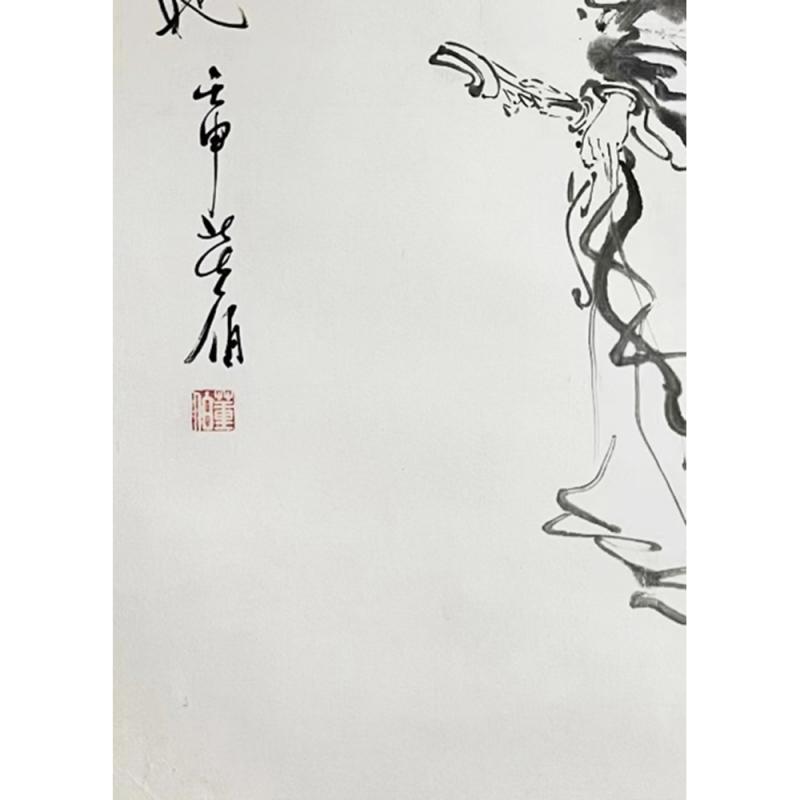 壬申董伯
董伯